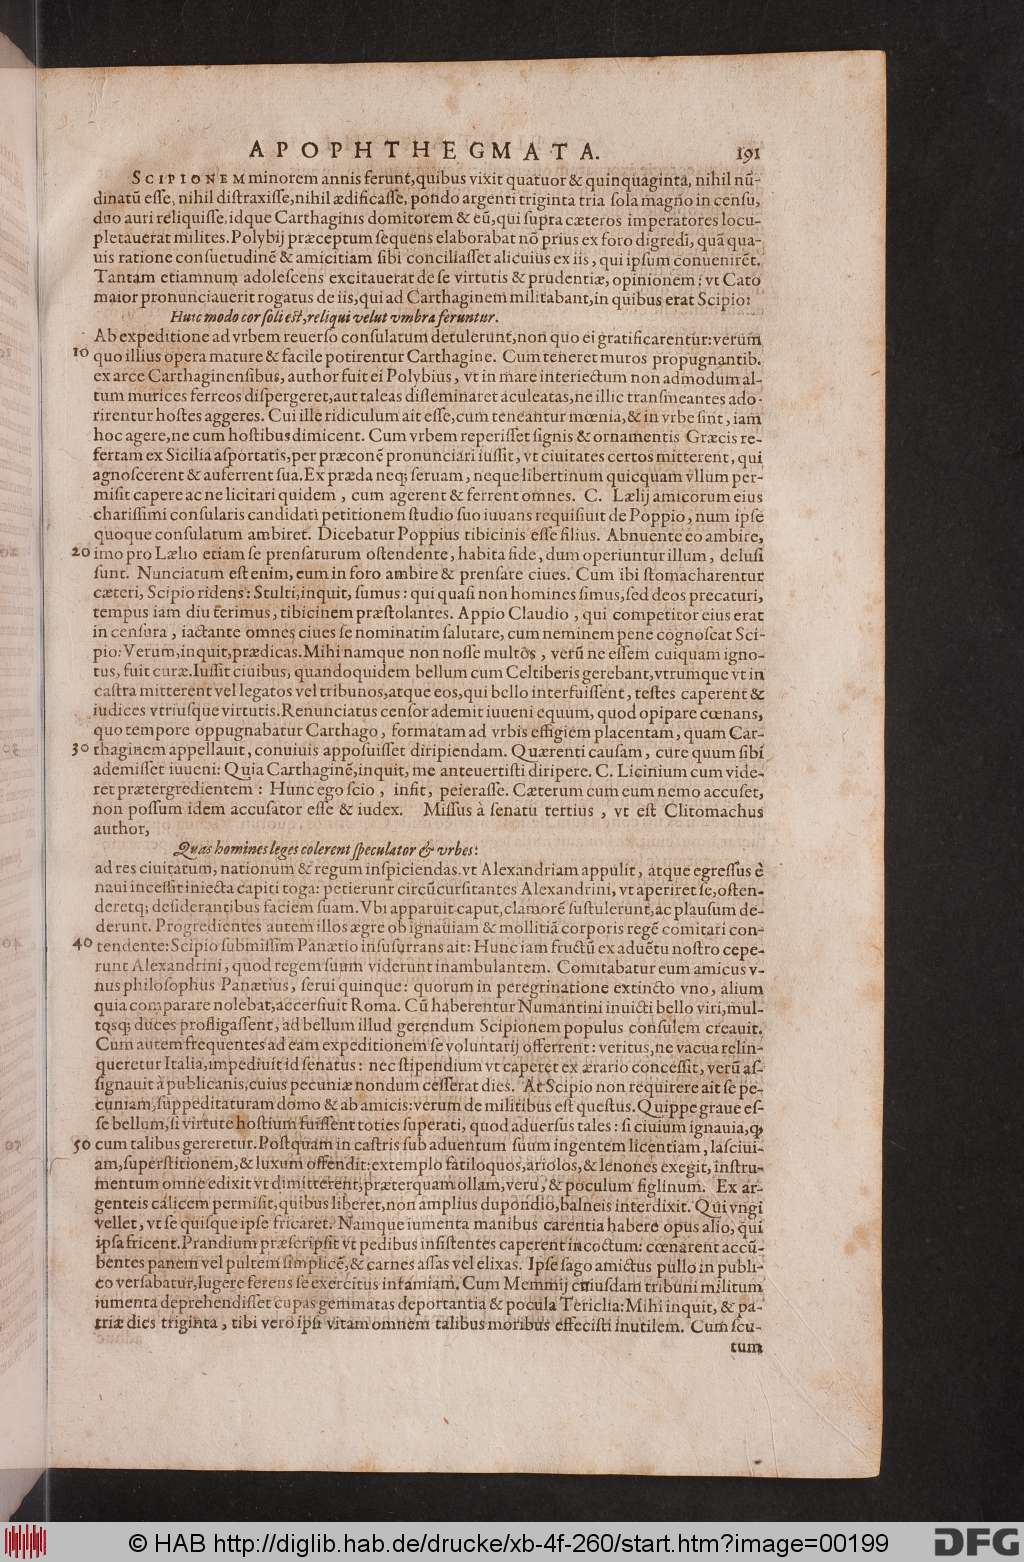 APOPHTHEGMATA. 191
SCIPIONEM minorem annis ferunt, quibus vixit quatuor & quinquaginta, nihil nũ-
dinatũ esse, nihil distraxisse, nihil ædificasse, pondo argenti triginta tria sola magno in censu,
duo auri reliquisse, idque Carthaginis domitorem & eũ, qui supra cæteros imperatores locu-
pletauerat milites. Polybij præceptum sequens elaborabat nõ prius ex foro digredi, quã qua-
uis ratione consuetudinẽ & amicitiam sibi conciliasset alicuius ex iis, qui ipsum conuenirẽt.
Tantam etiamnum adolescens excitauerat de se virtutis & prudentiæ, opinionem: vt Cato
maior pronunciauerit rogatus de iis, qui ad Carthaginem militabant, in quibus erat Scipio:
Huic modo cor soli est, reliqui velut vmbra feruntur.
Ab expeditione ad vrbem reuerso consulatum detulerunt, non quo ei gratificarentur: verum
10 quo illius opera mature & facile potirentur Carthagine. Cum teneret muros propugnantib.
ex arce Carthaginensibus, author fuit ei Polybius, vt in mare interiectum non admodum al-
tum murices ferreos dispergeret, aut taleas disseminaret aculeatas, ne illic transmeantes ado-
rirentur hostes aggeres. Cui ille ridiculum ait esse, cum teneantur mœnia, & in vrbe sint, iam
hoc agere, ne cum hostibus dimicent. Cum vrbem reperisset signis & ornamentis Græcis re-
fertam ex Sicilia asportatis, per præconẽ pronunciari iussit, vt ciuitates certos mitterent, qui
agnoscerent & auferrent sua. Ex præda neq; seruam, neque libertinum quicquam vllum per-
misit capere ac ne licitari quidem, cum agerent & ferrent omnes. C. Lælij amicorum eius
charissimi consularis candidati petitionem studio suo iuuans requisiuit de Poppio, num ipse
quoque consulatum ambiret. Dicebatur Poppius tibicinis esse filius. Abnuente eo ambire,
20 imo pro Lælio etiam se prensaturum ostendente, habita fide, dum operiuntur illum, delusi
sunt. Nunciatum est enim, eum in foro ambire & prensare ciues. Cum ibi stomacharentur
cæteri, Scipio ridens: Stulti, inquit, sumus: qui quasi non homines simus, sed deos precaturi,
tempus iam diu terimus, tibicinem præstolantes. Appio Claudio, qui competitor eius erat
in censura, iactante omnes ciues se nominatim salutare, cum neminem pene cognoscat Sci-
pio: Verum, inquit, prædicas. Mihi namque non nosse multos, verũ ne essem cuiquam igno-
tus, fuit curæ. Iussit ciuibus, quandoquidem bellum cum Celtiberis gerebant, vtrumque vt in
castra mitterent vel legatos vel tribunos, atque eos, qui bello interfuissent, testes caperent &
iudices vtriusque virtutis. Renunciatus censor ademit iuueni equum, quod opipare cœnans,
quo tempore oppugnabatur Carthago, formatam ad vrbis effigiem placentam, quam Car-
30 thaginem appellauit, conuiuis apposuisset diripiendam. Quærenti causam, cure quum sibi
ademisset iuueni: Quia Carthaginẽ, inquit, me anteuertisti diripere. C. Licinium cum vide-
ret prætergredientem: Hunc ego scio, infit, peierasse. Cæterum cum eum nemo accuset,
non possum idem accusator esse & iudex. Missus à senatu tertius, vt est Clitomachus
author,
Quas homines leges colerent speculator & vrbes:
ad res ciuitatum, nationum & regum inspiciendas. vt Alexandriam appulit, atque egressus è
naui incessit iniecta capiti toga: petierunt circũcursitantes Alexandrini, vt aperiret se, osten-
deretq; desiderantibus faciem suam. Vbi apparuit caput, clamorẽ sustulerunt, ac plausum de-
derunt. Progredientes autem illos ægre ob ignauiam & mollitiã corporis regẽ comitari con-
40 tendente: Scipio submissim Panætio insusurrans ait: Hunc iam fructũ ex aduẽtu nostro cepe-
runt Alexandrini, quod regem suum viderunt inambulantem. Comitabatur eum amicus v-
nus philosophus Panætius, serui quinque: quorum in peregrinatione extincto vno, alium
quia comparare nolebat, accersiuit Roma. Cũ haberentur Numantini inuicti bello viri, mul-
tosq; duces profligassent, ad bellum illud gerendum Scipionem populus consulem creauit.
Cum autem frequentes ad eam expeditionem se voluntarij offerrent: veritus, ne vacua relin-
queretur Italia, impediuit id senatus: nec stipendium vt caperet ex ærario concessit, verũ as-
signauit à publicanis, cuius pecuniæ nondum cesserat dies. At Scipio non requirere ait se pe-
cuniam, suppeditaturam domo & ab amicis: verum de militibus est questus. Quippe graue es-
se bellum, si virtute hostium fuissent toties superati, quod aduersus tales: si ciuium ignauia, ꝙ
50 cum talibus gereretur. Postquam in castris sub aduentum suum ingentem licentiam, lasciui-
am, superstitionem, & luxum offendit: extemplo fatiloquos, ariolos, & lenones exegit, instru-
mentum omne edixit vt dimitterent, præterquam ollam, veru, & poculum figlinum. Ex ar-
genteis calicem permisit, quibus liberet, non amplius dupondio, balneis interdixit. Qui vngi
vellet, vt se quisque ipse fricaret. Namque iumenta manibus carentia habere opus alio, qui
ipsa fricent. Prandium præscripsit vt pedibus insistentes caperent incoctum: cœnarent accũ-
bentes panem vel pultem simplicẽ, & carnes assas vel elixas. Ipse sago amictus pullo in publi-
co versabatur, lugere ferens se exercitus infamiam. Cum Memmij cuiusdam tribuni militum
iumenta deprehendisset cupas gemmatas deportantia & pocula Tericlia: Mihi inquit, & pa-
triæ dies triginta, tibi vero ipsi vitam omnem talibus moribus effecisti inutilem. Cum scu-
tum
© HAB http://diglib.hab.de/drucke/xb-4f-260/start.htm?image=00199
DFG